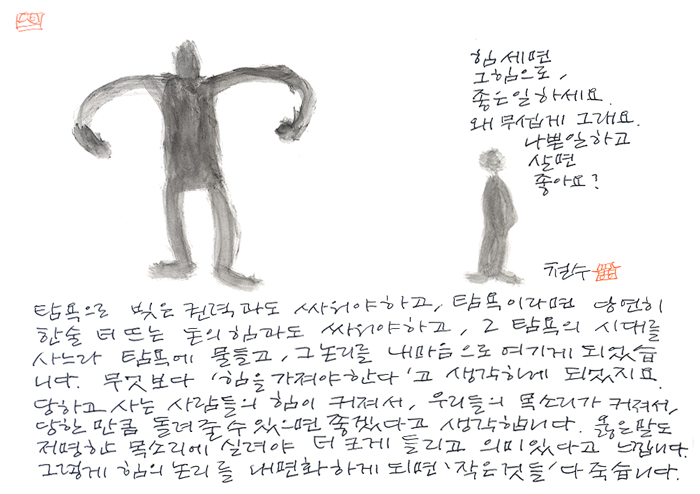 힘 세면
그 힘으로,
좋은일 하세요.
왜 무섭게 그래요.
나쁜일하고
살면
좋아요?
철수
탐욕으로 빚은 권력과도 싸워야하고, 탐욕이라면 당연히
한술 더 뜨는 돈의 힘과도 싸워야하고, 그 탐욕의 시대를
사느라 탐욕에 물들고, 그 논리를 내마음으로 여기게 되었습
니다. 무엇보다 '힘을 가져야한다'고 생각하게 되었지요.
당하고 사는 사람들의 힘이 커져서, 우리들의 목소리가 커져서,
당한 만큼 돌려 줄 수 있으면 좋겠다고 생각합니다. 옳은말도
저명한 목소리에 실려야 더 크게 들리고 의미있다고 느낍니다.
그렇게 힘의 논리를 내면화 하게 되면 '작은것들' 다 죽습니다.